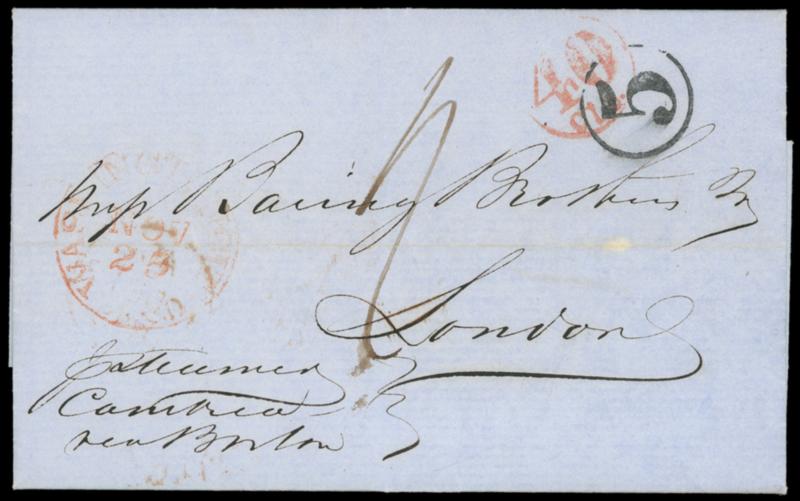 40
cts.
5
Messrs Baring Brothers &
London
NOV
23
p Steamer
Cambria
via Boston